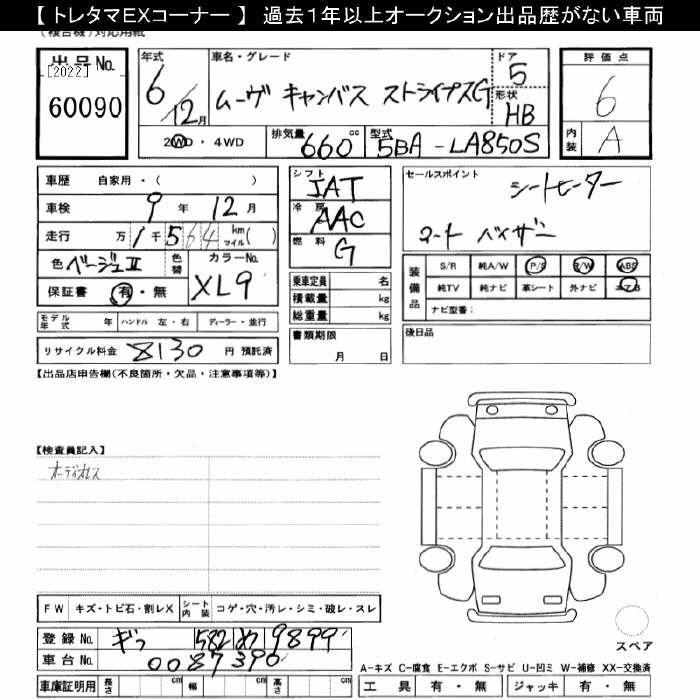 【 トレタマEXコーナー 】 過去1年以上オークション出品歴がない車両
出品No.
[2022]
60090
年式
6/12月
車名・グレード
ムーヴ キャンバス ストライプスG
ドア
5
形状
HB
2WD・4WD
排気量
660 cc
型式
5BA - LA850S
評価点
6
内装
A
車歴 自家用・( )
車検 9年 12月
走行 万 1千564 km マイル( )
色 ベージュⅡ 色替
カラーNo.
XL9
保証書 有・無
シフト
IAT
冷房
AAC
燃料
G
セールスポイント
シートヒーター
コート バイザー
乗車定員 名
積載量 kg
総重量 kg
装備品
S/R 純A/W P/S P/W ABS
純TV 純ナビ 革シート 外ナビ エアB
ナビ型番:
モデル年式 年 ハンドル 左・右 ディーラー・並行
書類期限
月 日
後日品
リサイクル料金 8130 円 預託済
【出品店申告欄(不良箇所・欠品・注意事項等)】
【検査員記入】
オーディオレス
FW キズ・トビ石・割レX シート内装 コゲ・穴・汚レ・シミ・破レ・スレ
登録No. ギフ 582 め 9899
車台No. 0087390
スペア
A-キズ C-腐食 E-エクボ S-サビ U-凹ミ W-補修 XX-交換済
車庫証明用 長さ cm 幅 cm 高さ cm
工具 有・無 ジャッキ 有・無